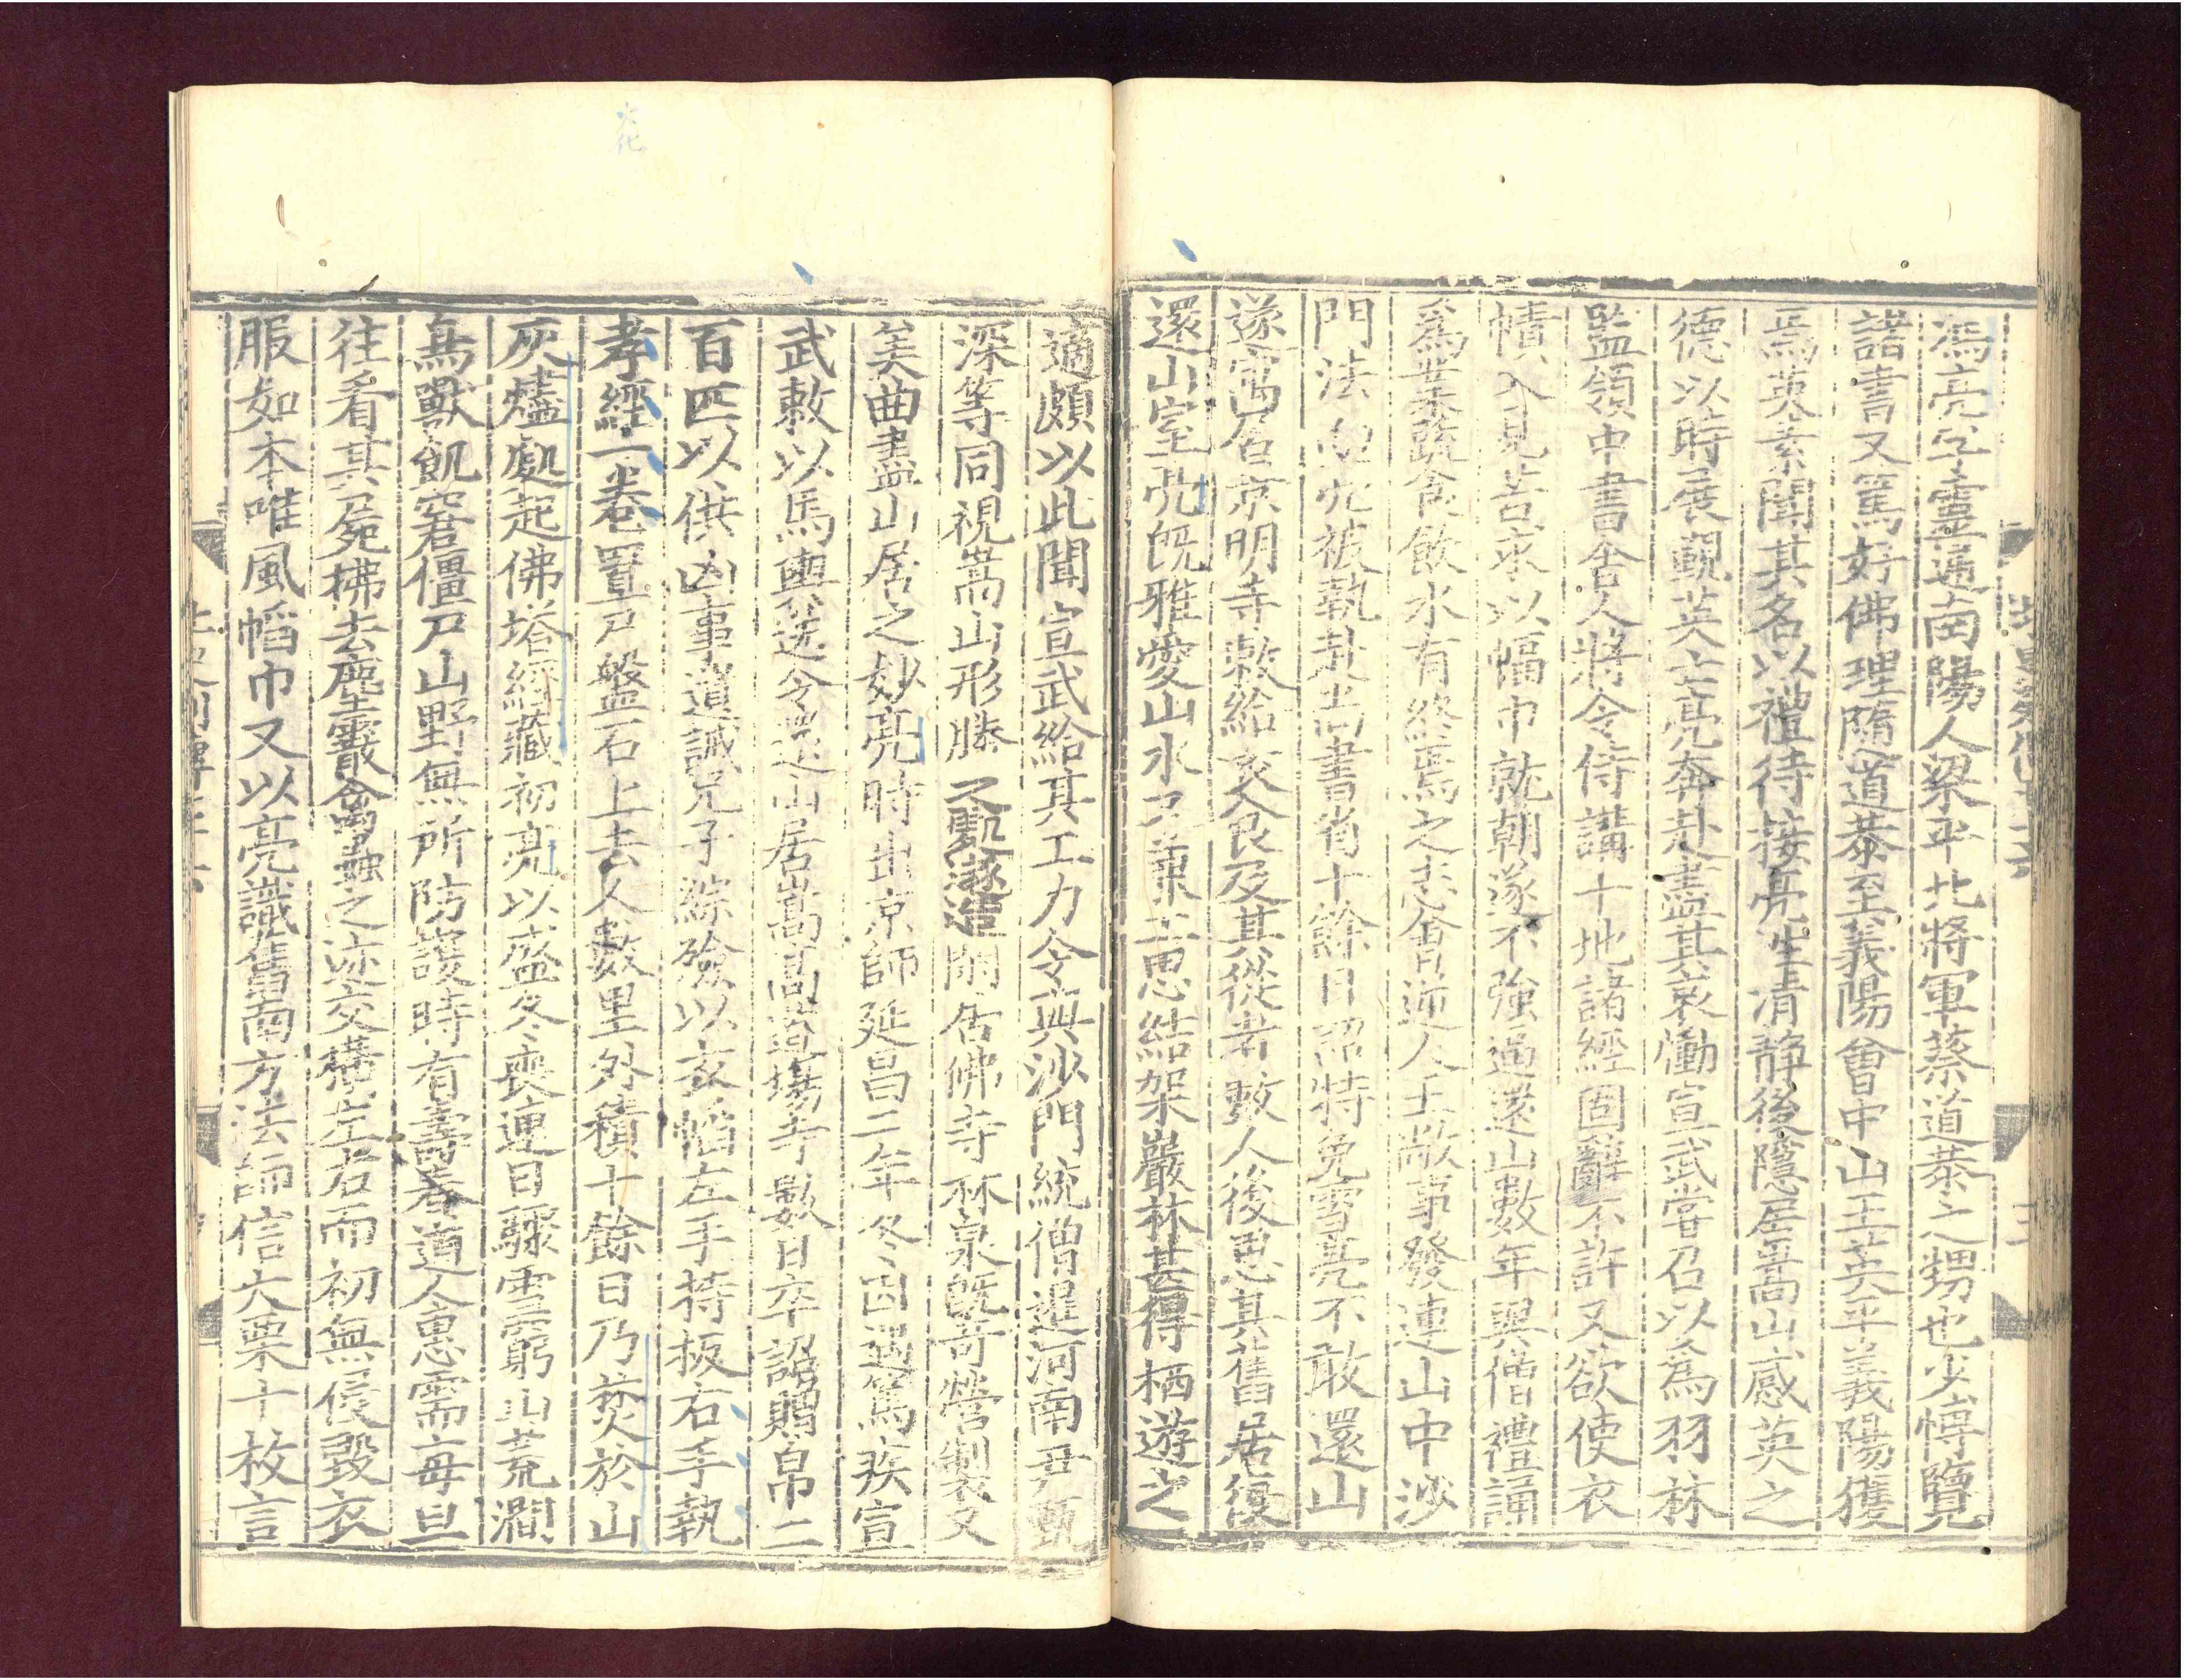 馮亮字靈通南陽人梁平北將軍蔡道恭之甥也少愽覽
諸書又篤好佛理隨道恭至義陽會中山王英平義陽獲
焉英素聞其名以禮待接亮性清靜後隱居嵩山感英之
德以時展覲英亡亮奔赴盡其哀慟宣武嘗召以為羽林
監領中書舍人將令侍講十地諸經固辭不許又欲使衣
幘入見苦求以幅巾就朝遂不強逼還山數年與僧禮誦
為業蔬食飲水有終焉之志會逆人王敞事發連山中沙
門法 被執赴尚書省十餘日詔特免雪亮不敢還山
遂寓居京明寺敕給衣食及其從者數人後思其舊居復
還山室亮既雅愛山水又兼工思結架巖林甚得栖遊之
適頗以此聞宣武給其工力令與沙門統僧暹河南尹甄
深等同視嵩山形勝之處遂造閑居佛寺林泉既奇營製又
美曲盡山居之妙亮時出京師延昌二年冬因遇篤疾宣
武敕以馬輿送令還山居嵩高道場寺數日卒詔贈帛二
百匹以供凶事遺誡兄子綜殮以衣㡌左手持板右手執
孝經一卷置尸盤石上去人數里外積十餘日乃焚於山
灰燼處起佛塔經藏初亮以盛冬喪連日驟雪窮山荒澗
鳥獸飢窘僵尸山野無所防護時有壽春道人惠需每旦
往看其屍拂去塵霰禽蟲之迹交橫左右而初無侵毀衣
服如本唯風㡌巾又以亮識舊南方法師信大栗十枚言
火化